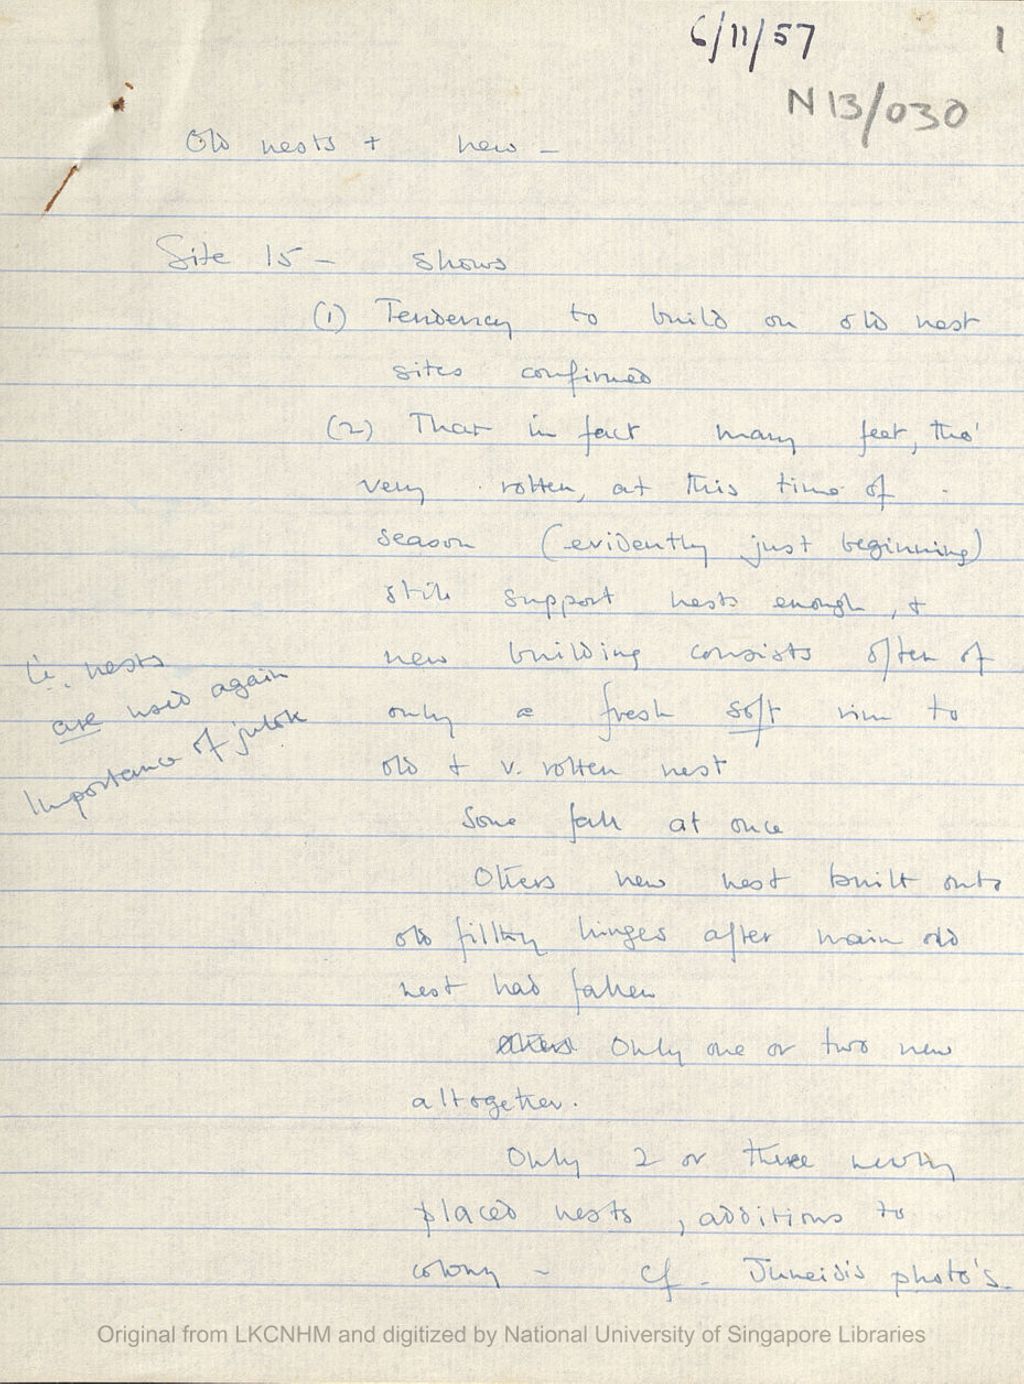 6/11/57
1
N13/030
Old nests + new -
Site 15 - shows
(1) Tendency to build on old nest
sites confirmed
(2) That in fact many feet, tho'
very rotten, at this time of
season (evidently just beginning)
still support nests enough, +
new building consists often of
only a fresh soft rim to
old + v. rotten nest
Some fall at once
Others new nest built onto
old filthy hinges after main old
nest had fallen
Others Only one or two new
altogether.
Only 2 or three newly
placed nests, additions to
colony - cf. Juneidis photo's.
i.e. nests
are used again
Importance of julok
Original from LKCNHM and digitized by National University of Singapore Libraries